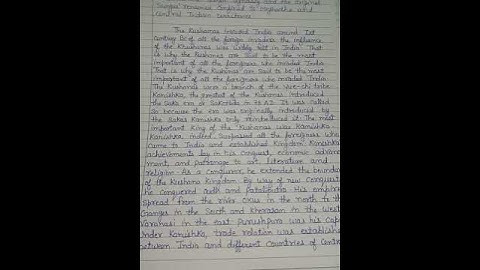 central Indian
The Kushanas invaded India around 1st
century BC of all the foreign invaders the influence
of the Khushanas was widely felt in India That
is why the Kushanas are said to be the most
important of all the foreigners who invaded India
That is why the Kushanas are said to be the most
important of all the foreigners who invaded India
The Kushanas were a branch of the Yue-chi tribe
Kanishka, the greatest of the Kushanas introduced
the Saka era or Sakabda in 78 A.D. It was called
so because the era was originally introduced by
the Sakas Kanishka only reintroduced it. The most
important King of the Kushanas was Kanishka
Kanishka, indeed surpassed all the foreigners who
came to India and established Kingdom Kanishka's
achievements lay in his conquest, economic advance
ment, and patronage to art literature and
religion. As a conqueror, he extended the boundary
of the Kushana Kingdom by way of new conquest
he conquered and Pataliputra. His empire
spread from the river Oxus in the north to the
Ganges in the South and Khorasan in the west
Varanasi in the east Purushpura was his Capi
Under Kanishka, trade relation was establishe
between India and different countries of Centra